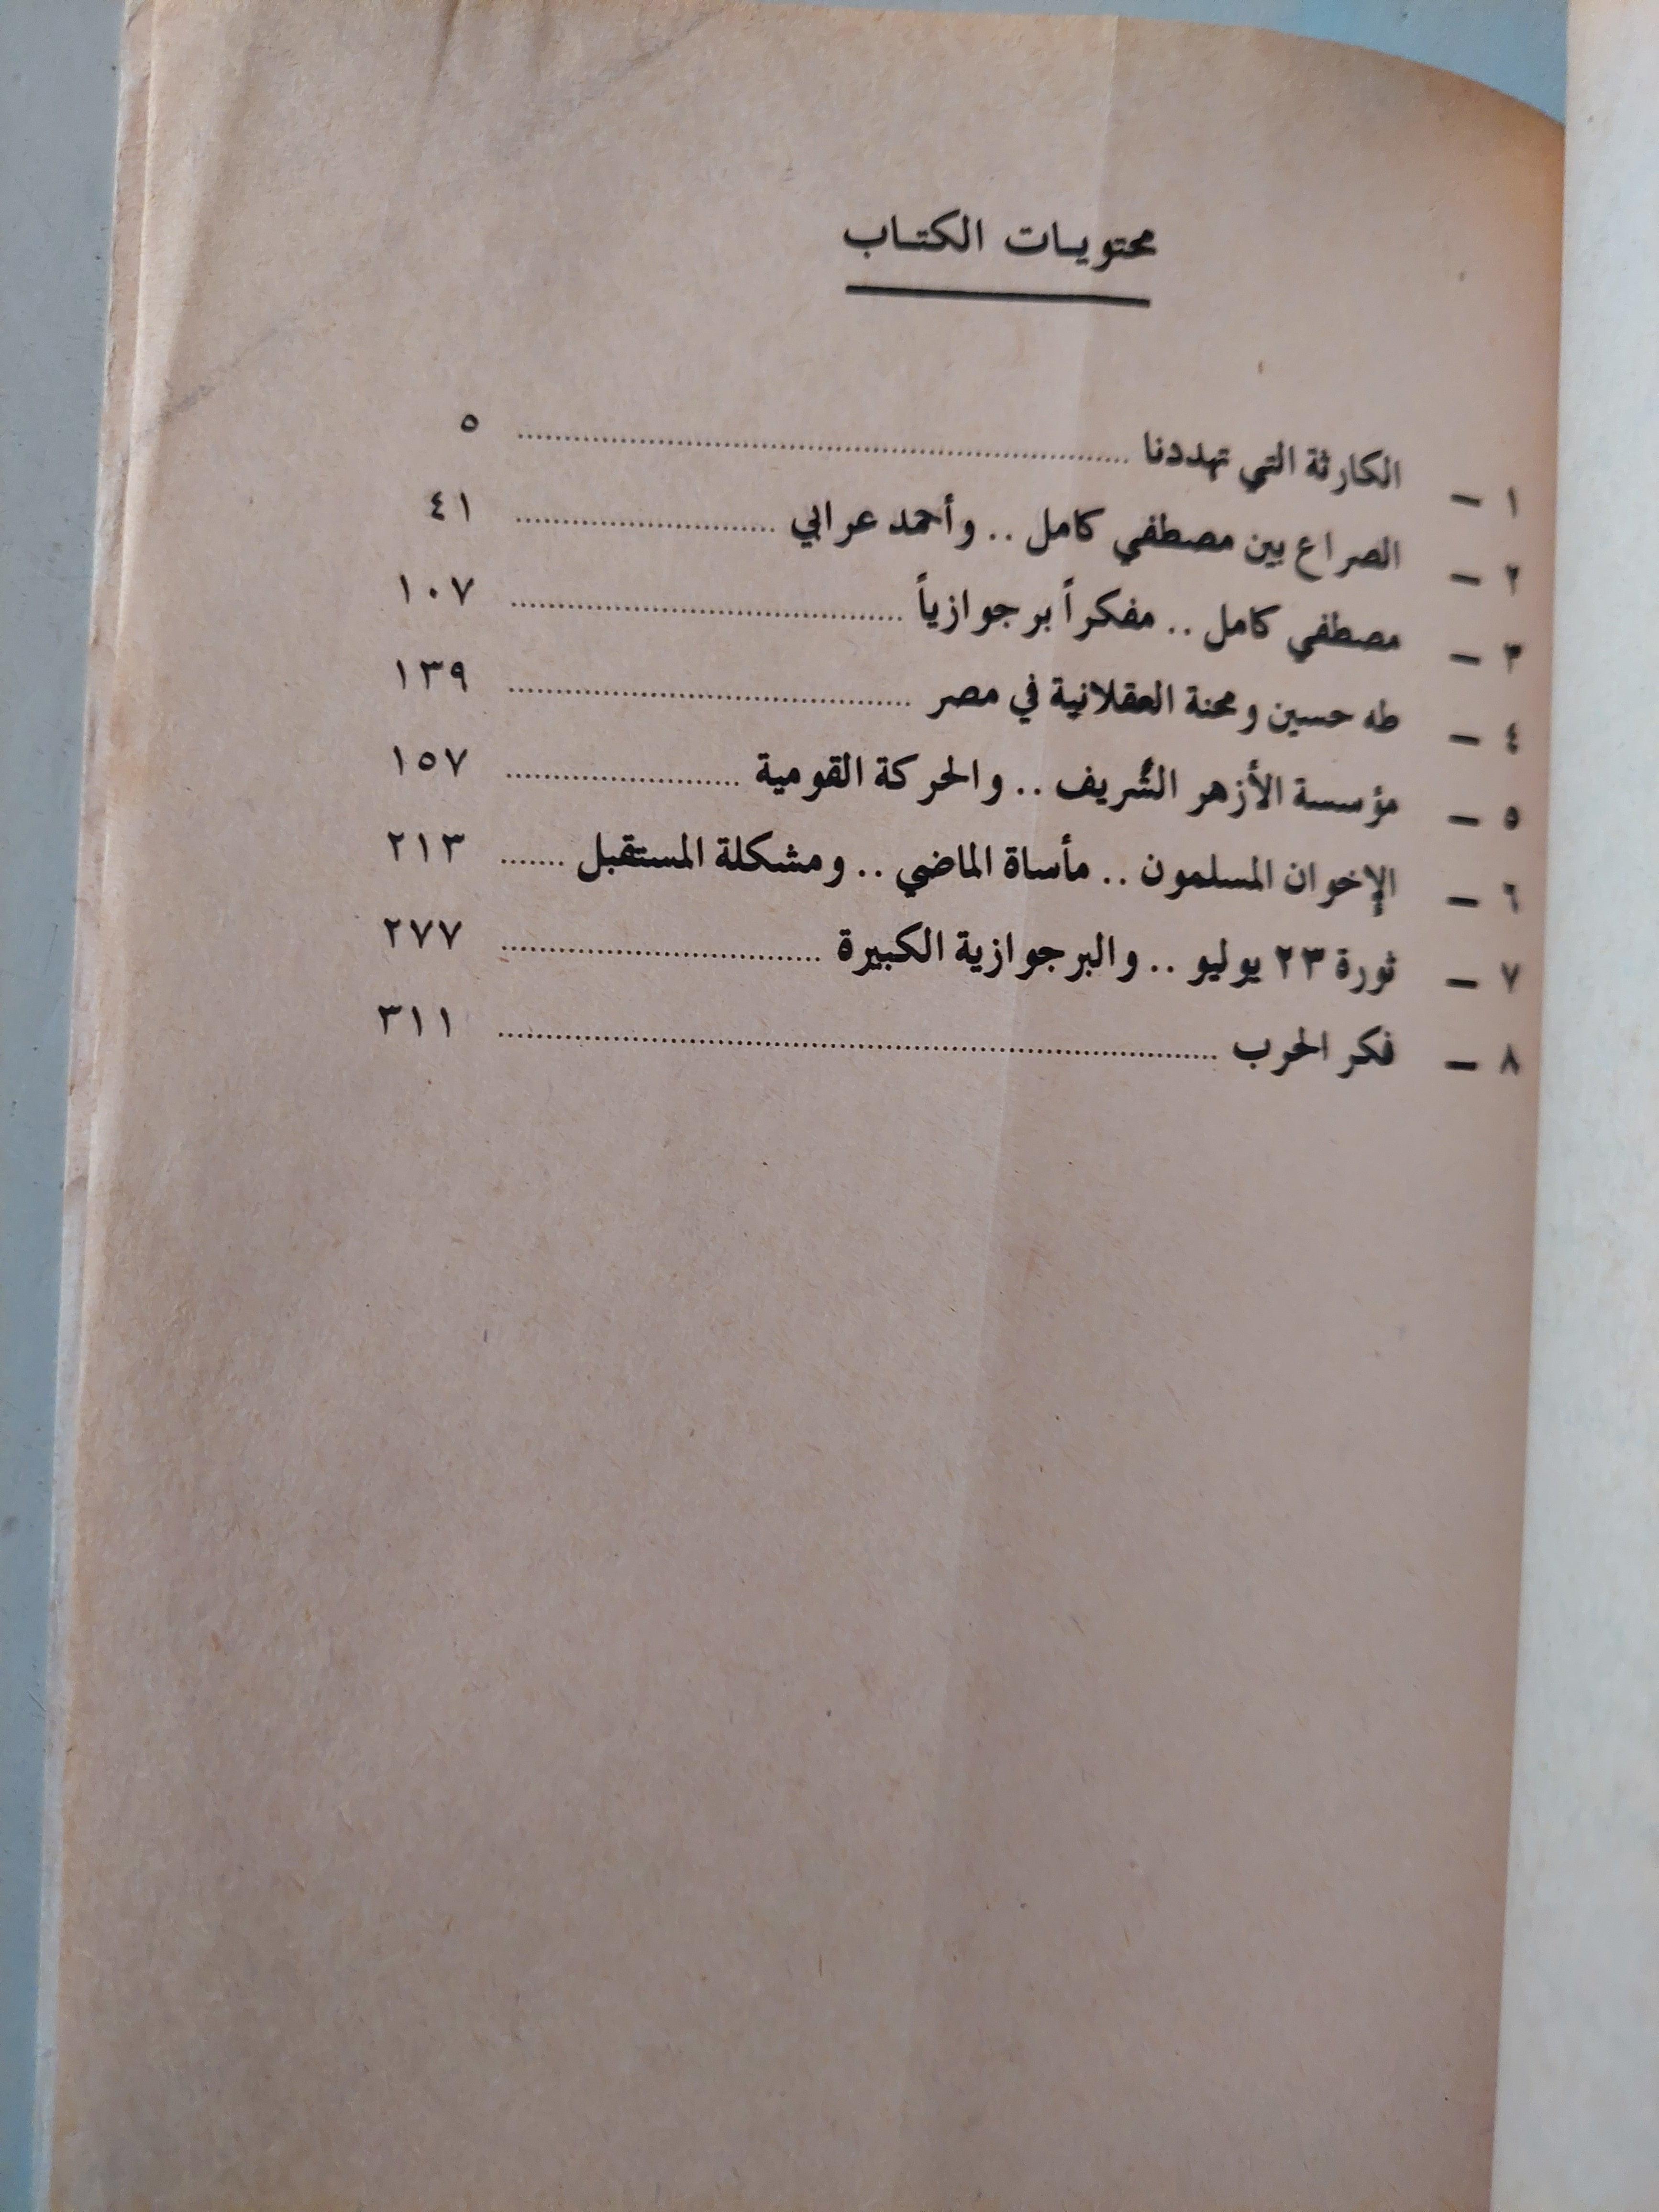 محتويات الكتاب
١ - الكارثة التي تهددنا ........ ٥
٢ - الصراع بين مصطفي كامل .. وأحمد عرابي ........ ٤١
٣ - مصطفي كامل .. مفكراً برجوازياً ........ ١٠٧
٤ - طه حسين ومحنة العقلانية في مصر ........ ١٣٩
٥ - مؤسسة الأزهر الشريف .. والحركة القومية ........ ١٥٧
٦ - الإخوان المسلمون .. مأساة الماضي .. ومشكلة المستقبل ........ ٢١٣
٧ - ثورة ٢٣ يوليو .. والبرجوازية الكبيرة ........ ٢٧٧
٨ - فكر الحرب ........ ٣١١